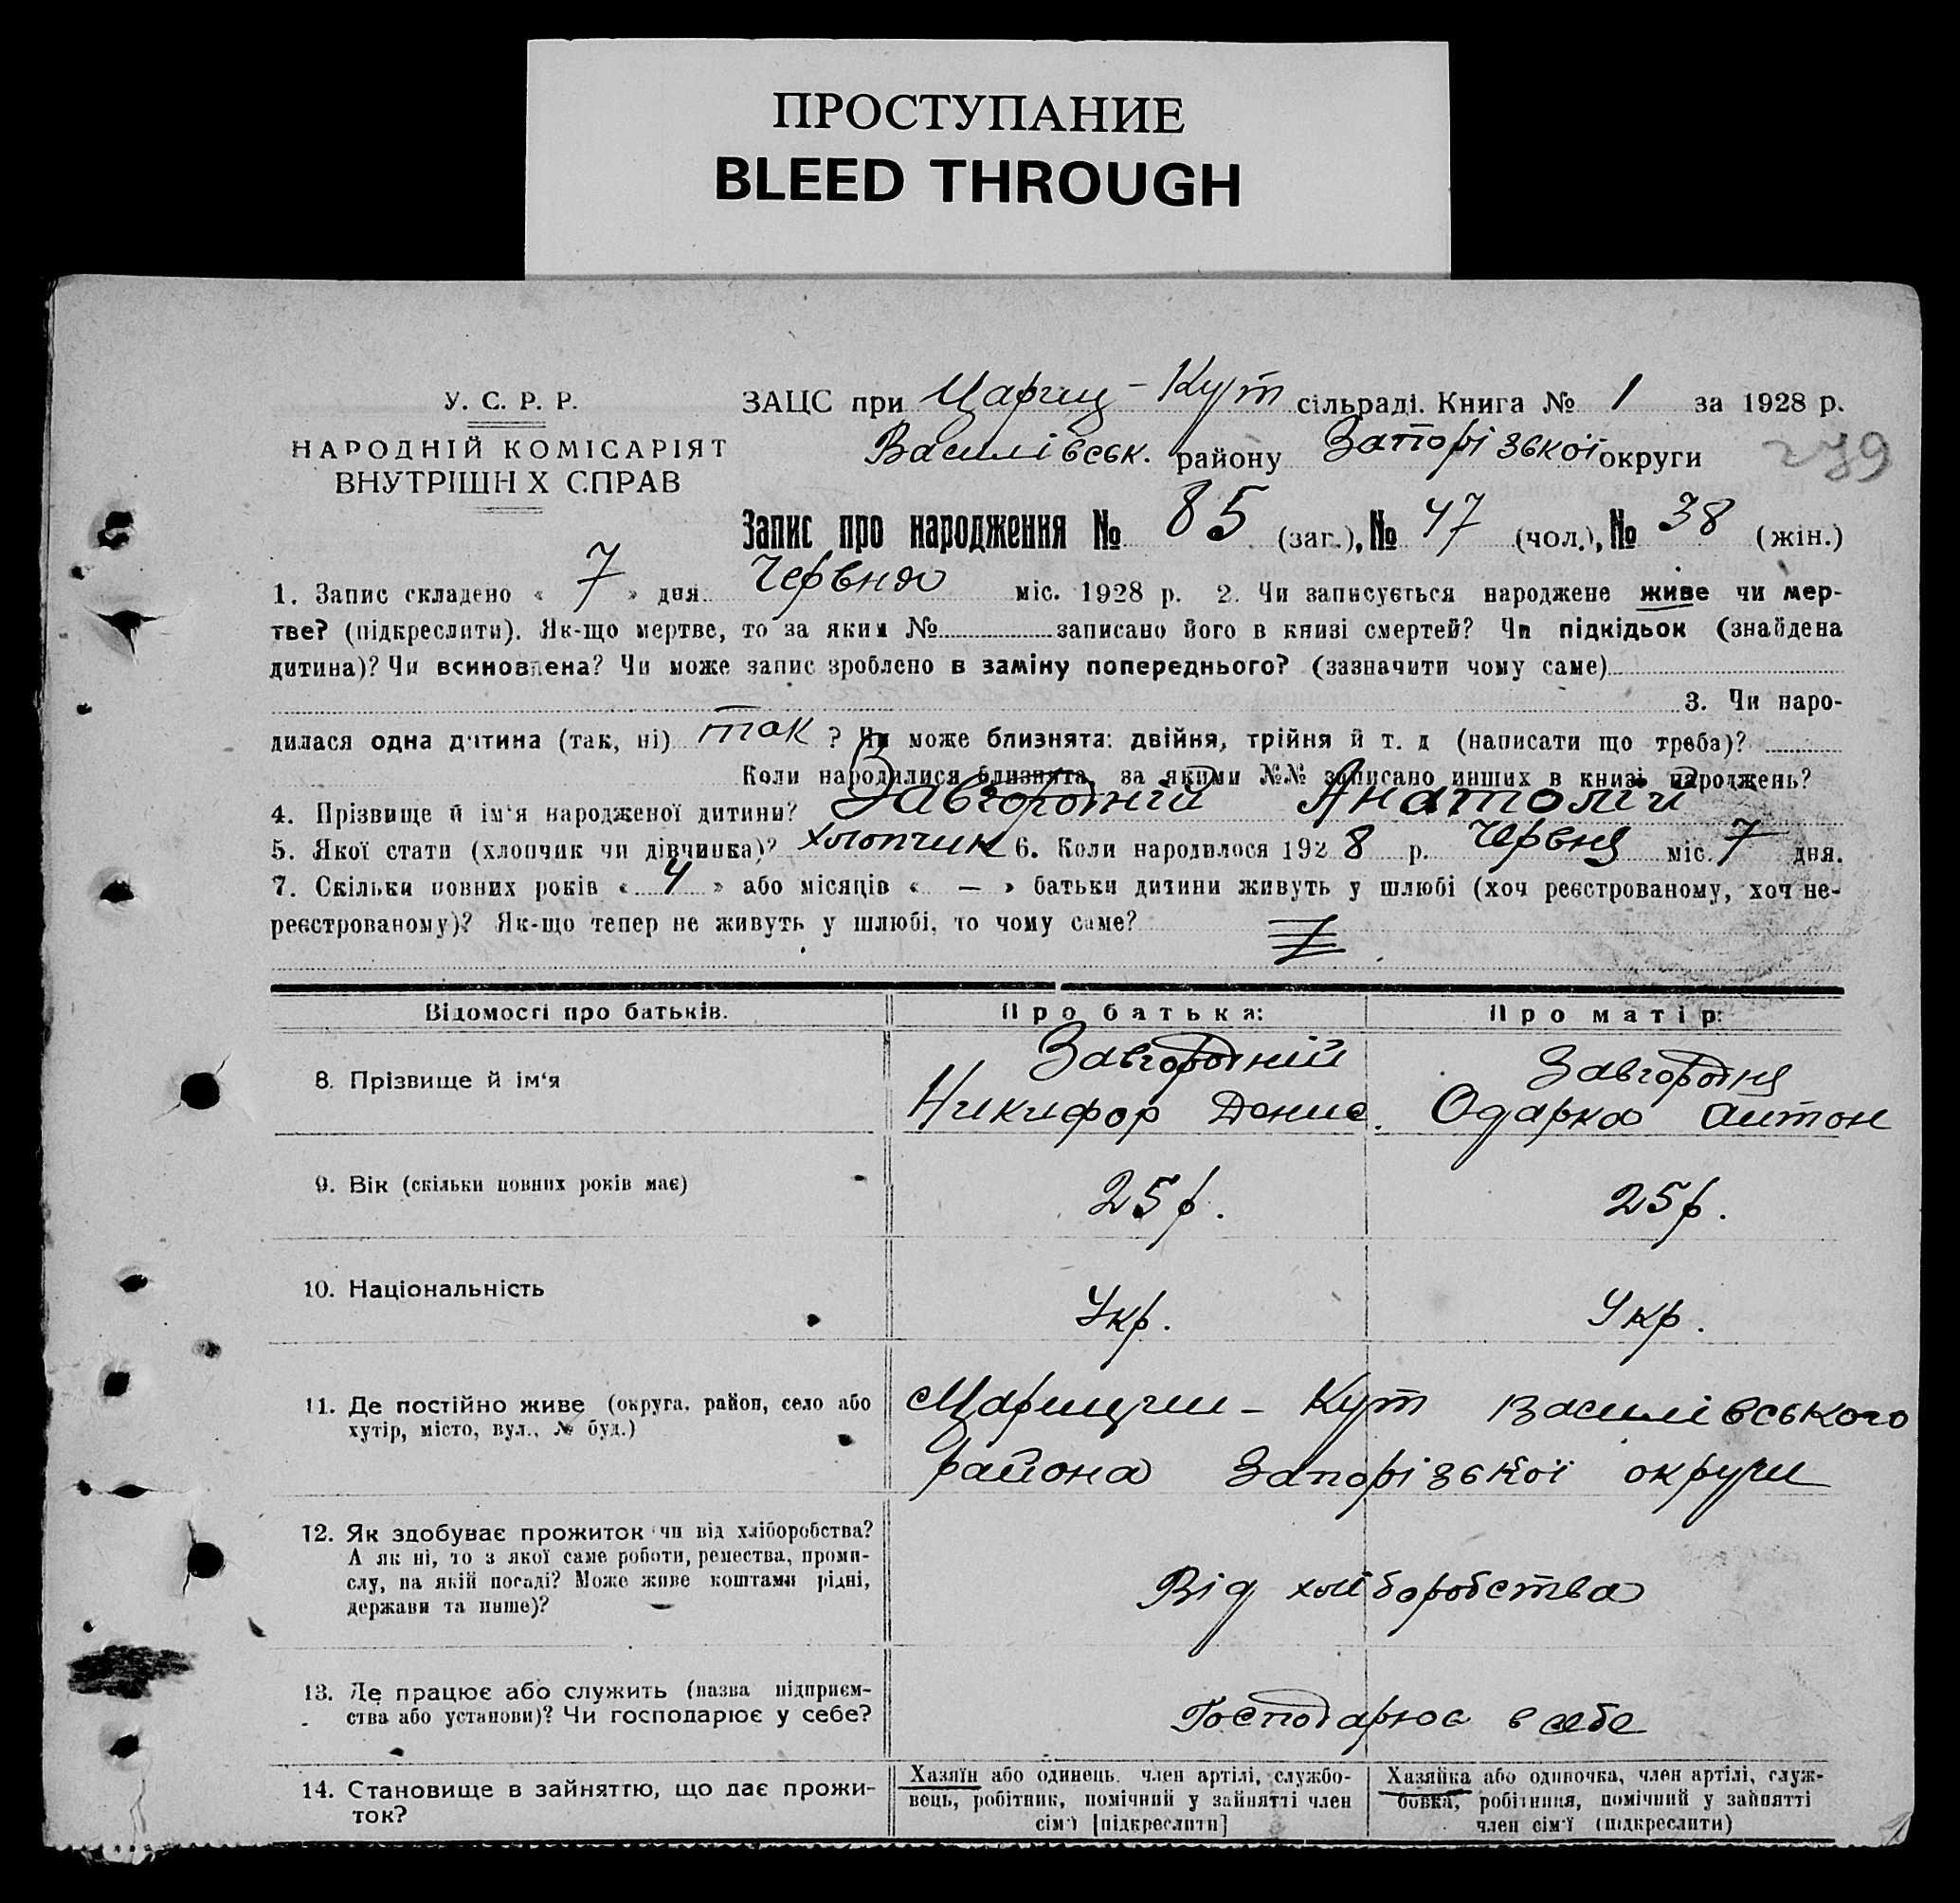 ПРОСТУПАНИЕ
BLEED THROUGH
У. С. Р. Р.
НАРОДНІЙ КОМІСАРІЯТ
ВНУТРІШНІХ СПРАВ
ЗАЦС при Цариц-Кут сільраді. Книга № 1 за 1928 р.
Василівськ. району Запорізької округи
279
Запис про народження № 85 (заг.), № 47 (чол.), № 38 (жін.)
1. Запис складено « 7 » дня Червня міс. 1928 р. 2. Чи записується народжене живе чи мер-
тве? (підкреслити). Як-що мертве, то за яким № записано його в книзі смертей? Чи підкідьок (знайдена
дитина)? Чи всиновлена? Чи може запис зроблено в заміну попереднього? (зазначити чому саме)
3. Чи наро-
дилася одна дитина (так, ні) так ? Чи може близнята: двійня, трійня й т. д (написати що треба)?
Коли народилися близнята, за якими №№ записано инших в книзі народжень?
4. Прізвище й ім'я народженої дитини? Завгородній Анатолій
5. Якої стати (хлопчик чи дівчинка)? хлопчик 6. Коли народилося 1928 р. Червня міс. 7 дня.
7. Скільки повних років « 4 » або місяців « — » батьки дитини живуть у шлюбі (хоч реєстрованому, хоч не-
реєстрованому)? Як-що тепер не живуть у шлюбі, то чому саме?
Відомості про батьків. Про батька: Про матір:
Завгородній Завгородня
8. Прізвище й ім'я Никифор Денис. Одарка Антон
9. Вік (скільки повних років має) 25 р. 25 р.
10. Національність Укр. Укр.
11. Де постійно живе (округа, район, село або Царицин-Кут Василівського
хутір, місто, вул., № буд.) района Запорізької округи
12. Як здобуває прожиток чи від хліборобства?
А як ні, то з якої саме роботи, ремества, проми-
слу, на якій посаді? Може живе коштами рідні, Від хліборобства
держави та инше)?
13. Де працює або служить (назва підприєм-
ства або установи)? Чи господарює у себе? Господарює в себе
14. Становище в зайняттю, що дає прожи-
ток?
Хазяїн або одинець, член артілі, службо-
вець, робітник, помічний у зайнятті член
сім'ї [підкреслити]
Хазяйка або одиночка, член артілі, служ-
бовка, робітниця, помічний у зайнятті
член сім'ї (підкреслити)